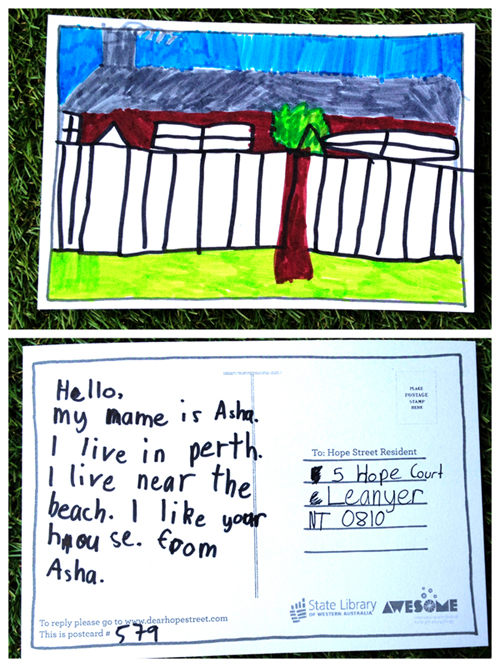 Hello,
my name is Asha.
I live in perth.
I live near the
beach. I like your
house. from
Asha.
To reply please go to www.dearhopestreet.com
This is postcard # 579
PLACE
POSTAGE
STAMP
HERE
To: Hope Street Resident
5 Hope Court
Leanyer
NT 0810
State Library
OF WESTERN AUSTRALIA
AWESOME